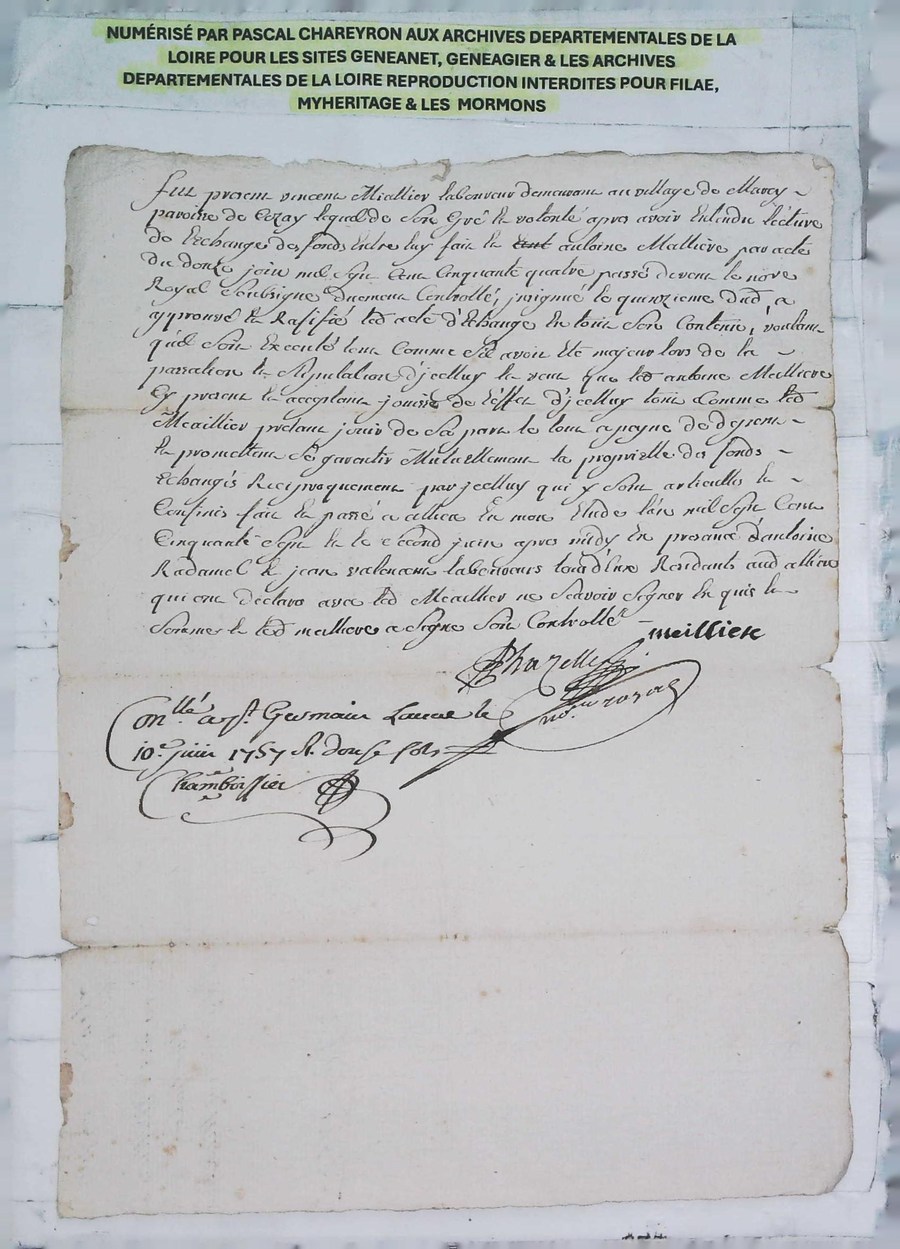 NUMÉRISÉ PAR PASCAL CHAREYRON AUX ARCHIVES DEPARTEMENTALES DE LA
LOIRE POUR LES SITES GENEANET, GENEAGIER & LES ARCHIVES
DEPARTEMENTALES DE LA LOIRE REPRODUCTION INTERDITES POUR FILAE,
MYHERITAGE & LES MORMONS
fut present vincent Miallier laboureur demeurant au village de Marcy
paroisse de Cezay lequel de son gré et volonté apres avoir Entendu lécture
de Eschange de fonds Entre luy fait et antoine Mallière par acte
du douze juin mil sept Cent Cinquante quatre passé devant le nore
Royal Soubsigné duement Controllé, insignué le quinzieme dud a
approuvé et Ratifié led acte d'Echange En tout son Contenu, voulant
quil soit Executé tout Comme sil avoit Eté majeur lors de la
passation et stipulation d'jcelluy et veut que led antoine Meilliere
Cy present et acceptant jouisse de l'Effet d'jcelluy tout Comme led
Meaillier pretant jouir de sa part le tout a peyne de depent
et promettent se garantir Mutuellement la proprielle des fonds
Echangés Reciproquement par jcelluy qui y sont articullés et
Confinés fait et passé a allieu En mon Etude l'an mil sept Cent
Cinquante sept et le second juin apres midy En presance d'antoine
Radamel et jean valencent laboureurs tous deux Residants aud allieu
qui ont declaré avec led Meaillier ne scavoir signer En quis et
sommé et led malliere a signé soit Controllé
meilliere
Chazelle
no.re royal
Con.llé a st. Germain Laval le
10e juin 1757 R. douse sols
Chamboissier